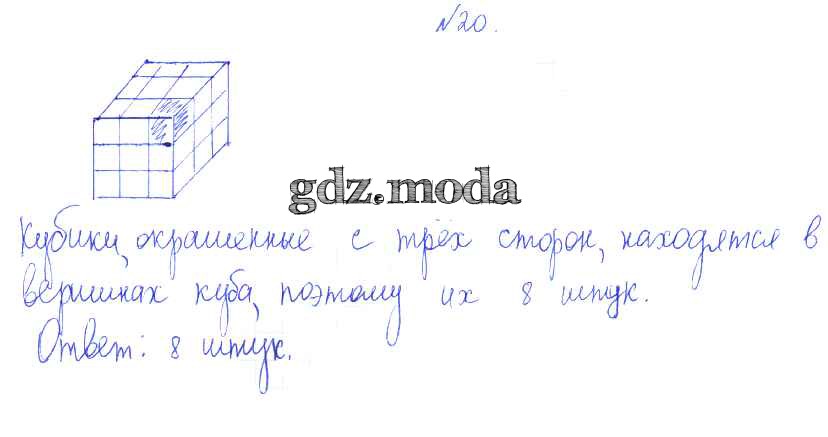 №20.
gdz.moda
Кубики, окрашенные с трёх сторон, находятся в
вершинах куба, поэтому их 8 штук.
Ответ: 8 штук.